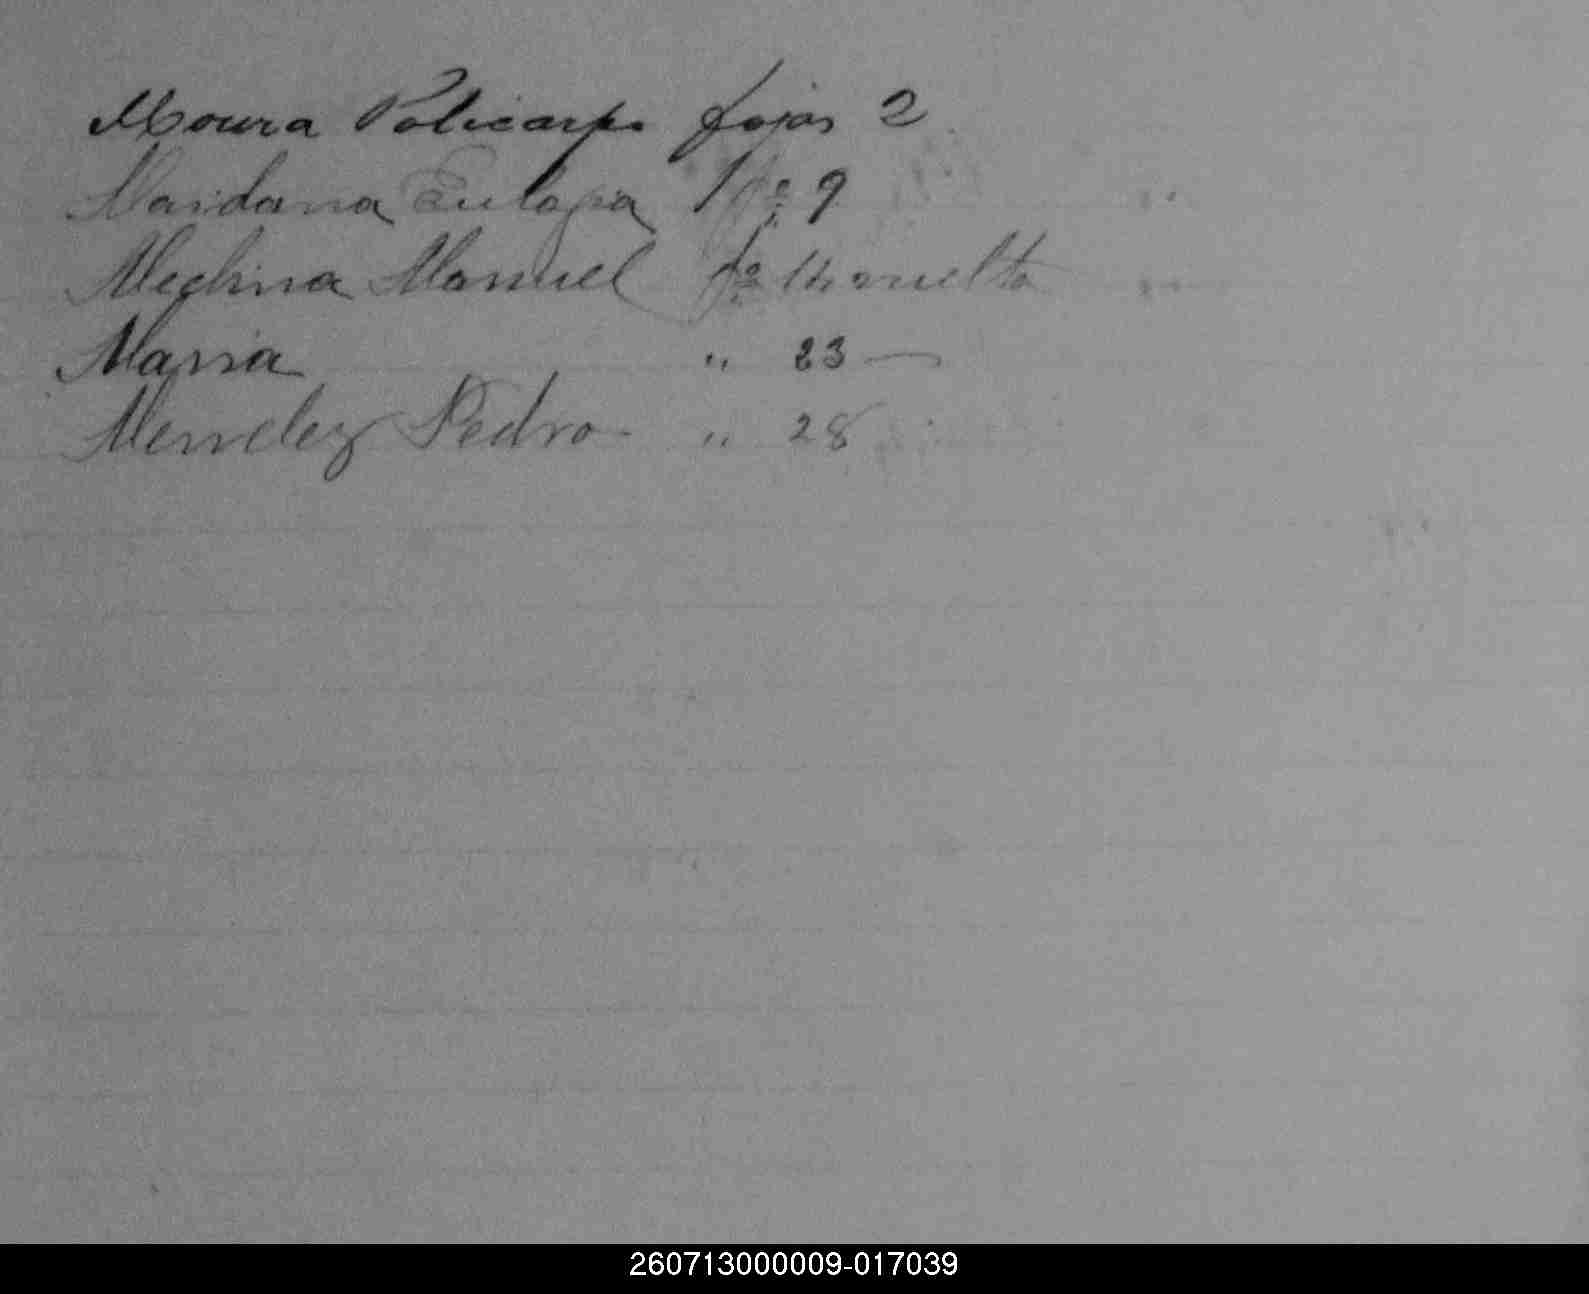 Moura Policarpo fojas 2
Maidana Eulogia f⁠ª 9
Medina Manuel fª 14 vuelta
Maria " 23 —
Mendez Pedro " 28
260713000009-017039